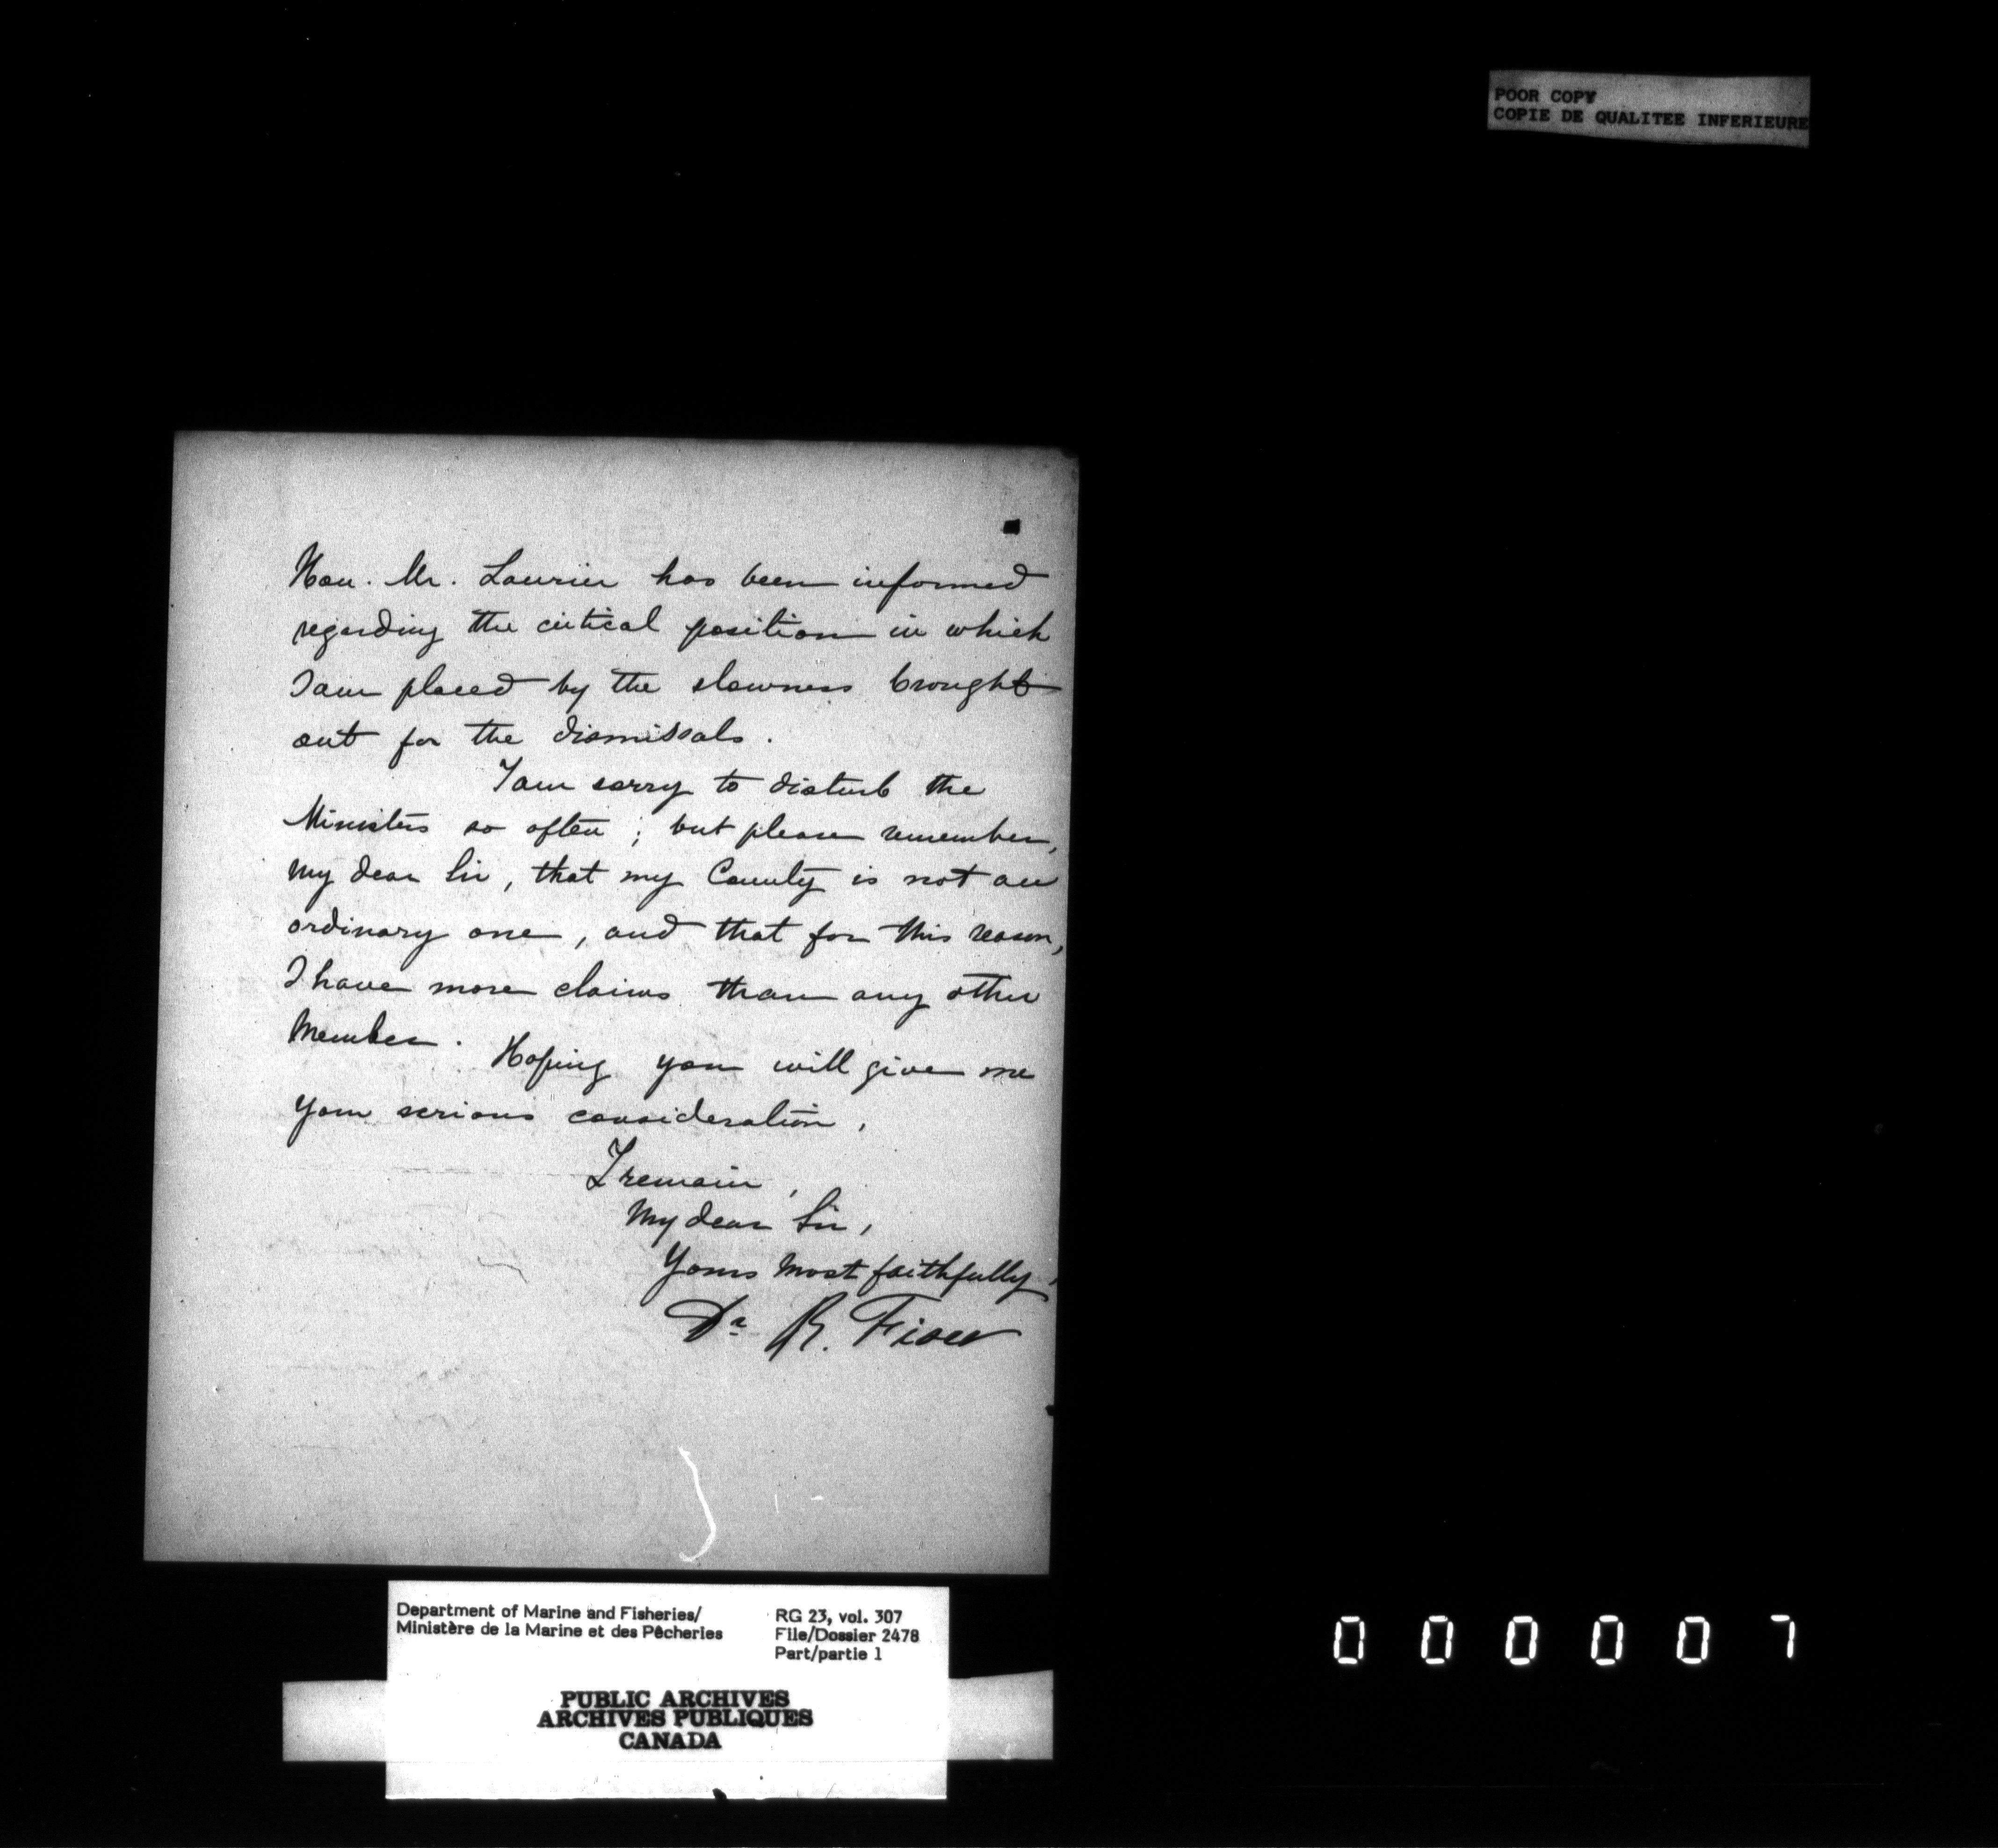 POOR COPY
COPIE DE QUALITEE INFERIEURE
Hon. Mr. Laurier has been informed
regarding the critical position in which
I am placed by the slowness brought
out for the dismissals.
I am sorry to disturb the
Ministers so often; but please remember,
my dear Sir, that my County is not an
ordinary one, and that for this reason,
I have more claims than any other
Member.
Hoping you will give me
your serious consideration,
I remain,
My dear Sir,
Yours most faithfully,
Dr R. Fiset
Department of Marine and Fisheries/
Ministère de la Marine et des Pêcheries
RG 23, vol. 307
File/Dossier 2478
Part/partie 1
PUBLIC ARCHIVES
ARCHIVES PUBLIQUES
CANADA
000007